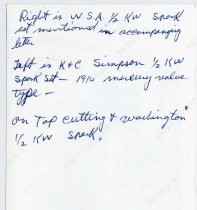 Right is W.S.A. 1/2 KW Spark
set mentioned in accompanying
letter
Left is K+C Simpson 1/2 KW
Spark Set - 1916 mercury valve
type -
on Top cutting + washington
1/2 KW Spark.